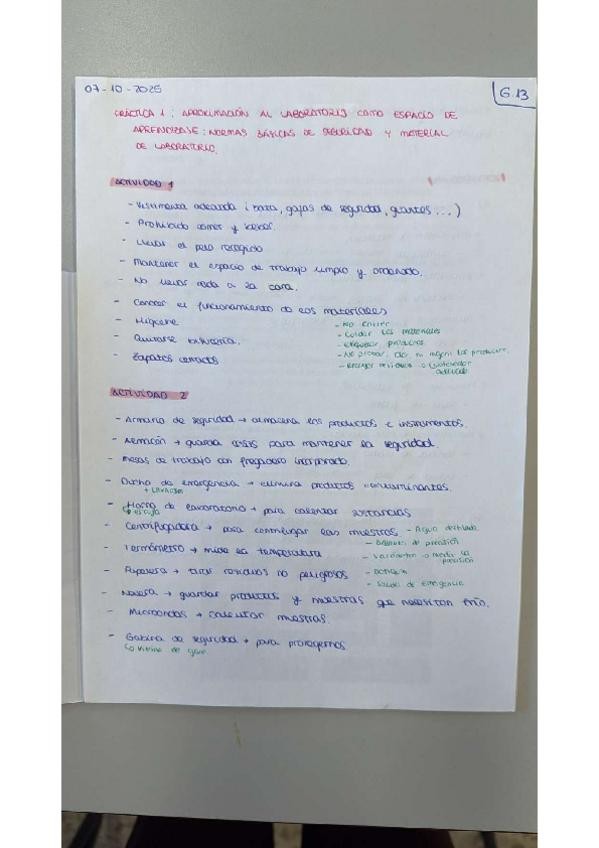 07-10-2025
G.13
PRÁCTICA 1: APROXIMACIÓN AL LABORATORIO COMO ESPACIO DE
APRENDIZAJE: NORMAS BÁSICAS DE SEGURIDAD Y MATERIAL
DE LABORATORIO.
ACTIVIDAD 1
- Vestimenta adecuada (bata, gafas de seguridad, guantes...)
- Prohibido comer y beber.
- Llevar el pelo recogido
- Mantener el espacio de trabajo limpio y ordenado.
- No llevar nada a la cara.
- Conocer el funcionamiento de los materiales
- Higiene
- Quitarse bisutería.
- Zapatos cerrados
- No correr
- Cuidar los materiales
- Etiquetar productos
- No probar, oler ni ingerir los productos.
- Recoger residuos → Contenedor
adecuado
ACTIVIDAD 2
- Armario de seguridad → almacena los productos e instrumentos.
- Armazón → guarda cosas para mantener la seguridad.
- Mesas de trabajo con fregadero incorporado.
- Ducha de emergencia → elimina productos contaminantes.
+ Lavaojos
- Horno de laboratorio → para calentar sustancias
→ estufa
- Centrifugadora → para centrifugar las muestras.
- Termómetro → mide la temperatura
- Papelera → tirar residuos no peligrosos
- Nevera → guardar productos y muestras que necesitan frío.
- Microondas → calentar muestras.
- Cabina de seguridad → para protegernos
↳ Vitrina de gases
- Agua destilada
- Balanzas de precisión
- Vacuómetro → medir la
presión
- Botiquín
- Salidas de emergencia